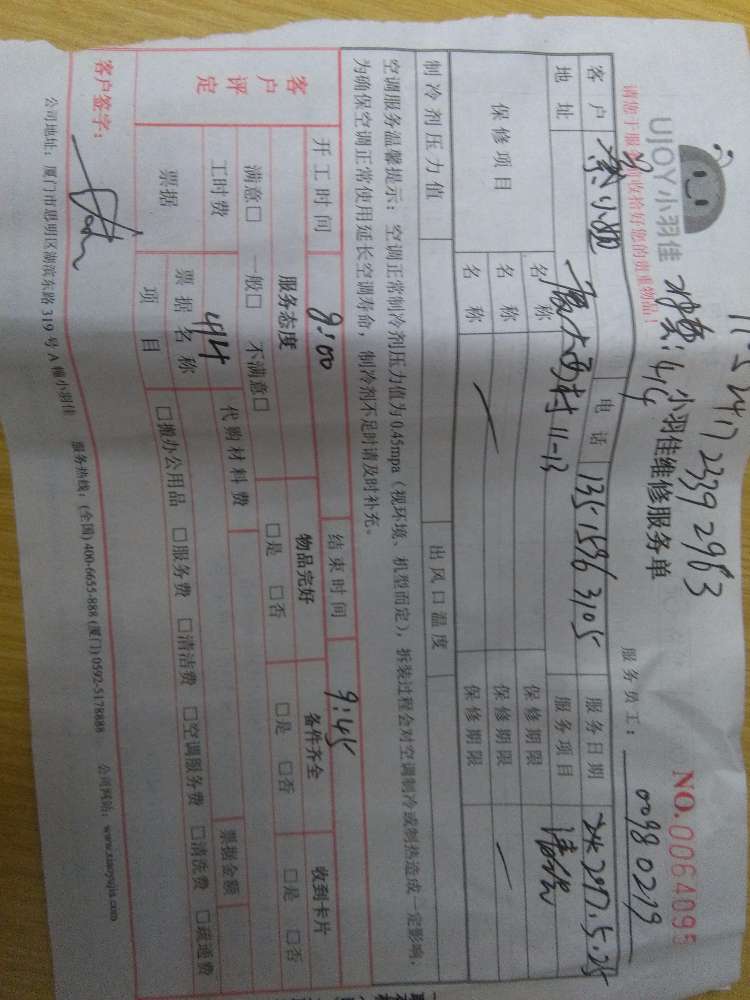 2339 2963
UJOY小羽佳 小羽佳维修服务单 NO.0064095
414
请您于服务前收拾好您的贵重物品! 服务员工: 0098 0219
客户 小姐 电话 135 1596 3105 服务日期 5.25
地址 厦大西村 11-13 服务项目 清洗
保修项目 名称 保修期限
名称 保修期限
名称 保修期限
制冷剂压力值 出风口温度
空调服务温馨提示: 空调正常制冷剂压力值为0.45mpa(视环境、机型而定), 拆装过程会对空调制冷或制热造成一定影响,
为确保空调正常使用延长空调寿命, 制冷剂不足时请及时补充。
开工时间 9:00 结束时间 9:45
客户评定 服务态度 物品完好 备件齐全 收到卡片
满意□ 一般□ 不满意□ □是 □否 □是 □否 □是 □否
工时费 414 代购材料费 票据金额
票据 票据名称
项目 □搬办公用品 □服务费 □清洁费 □空调服务费 □清洗费 □疏通费
客户签字:
公司地址: 厦门市思明区湖滨东路 319 号 A 幢小羽佳 服务热线: (全国) 400-6655-888 (厦门) 0592-5178888 公司网站: www.xiaoyujia.com